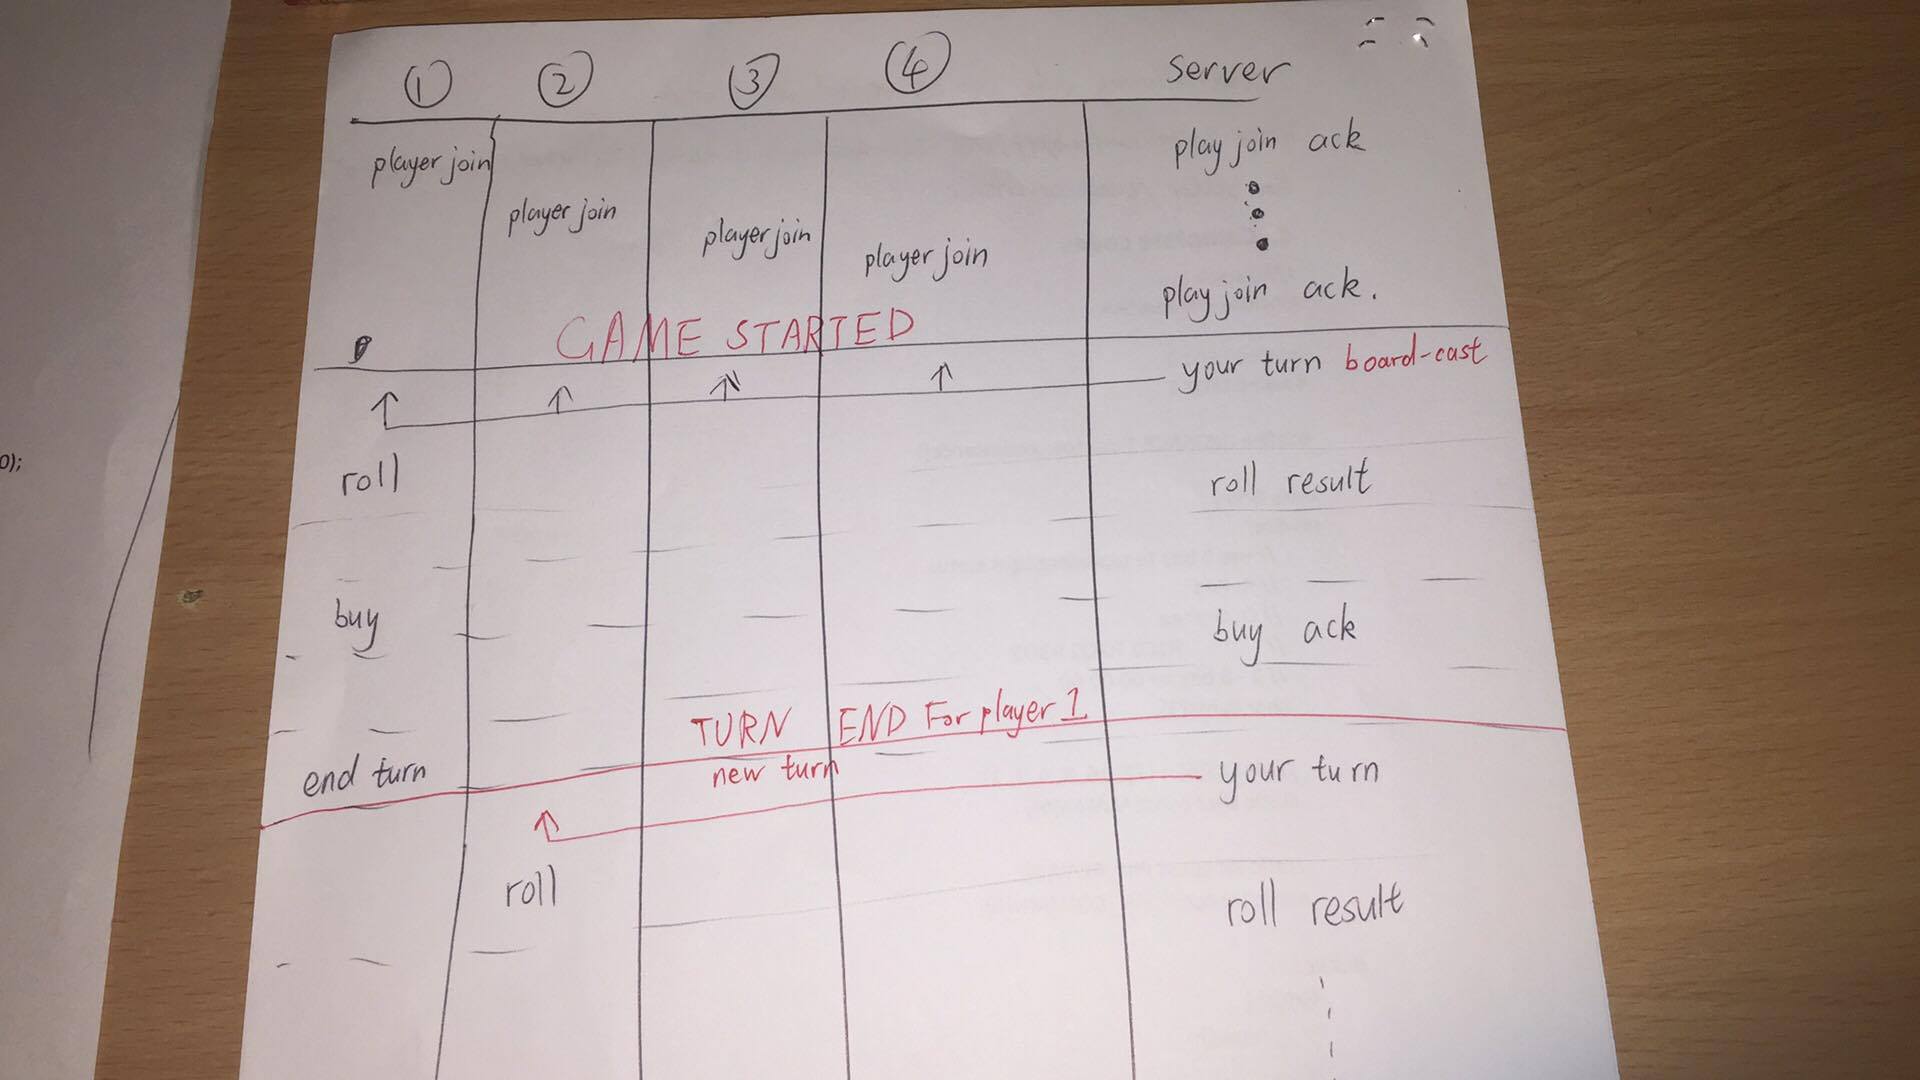 ① ② ③ ④ server
player join
player join
player join
player join
play join ack
play join ack.
GAME STARTED
your turn board-cast
roll
roll result
buy
buy ack
TURN END For player 1
end turn
new turn
your turn
roll
roll result
0);